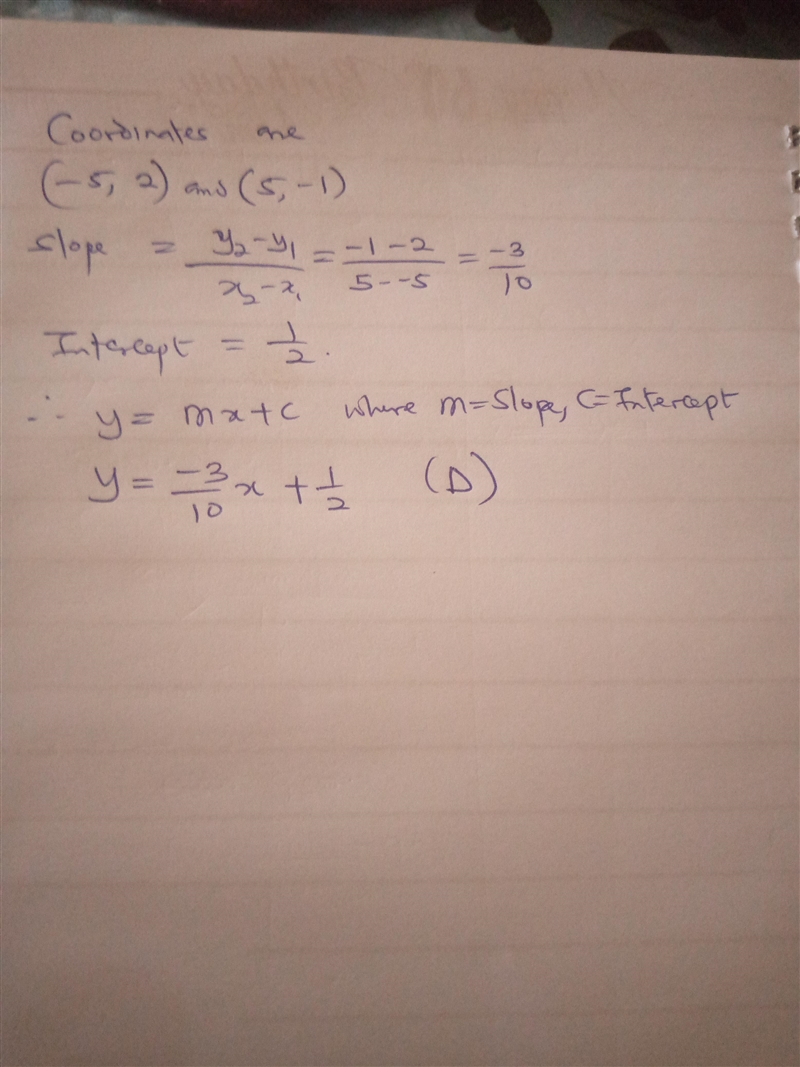 Coordinates are
(-5, 2) and (5, -1)
Slope = \frac{y_2-y_1}{x_2-x_1} = \frac{-1-2}{5--5} = \frac{-3}{10}
Intercept = \frac{1}{2}.
∴ y = mx+c where m=Slope, C=Intercept
y = \frac{-3}{10}x + \frac{1}{2} (D)